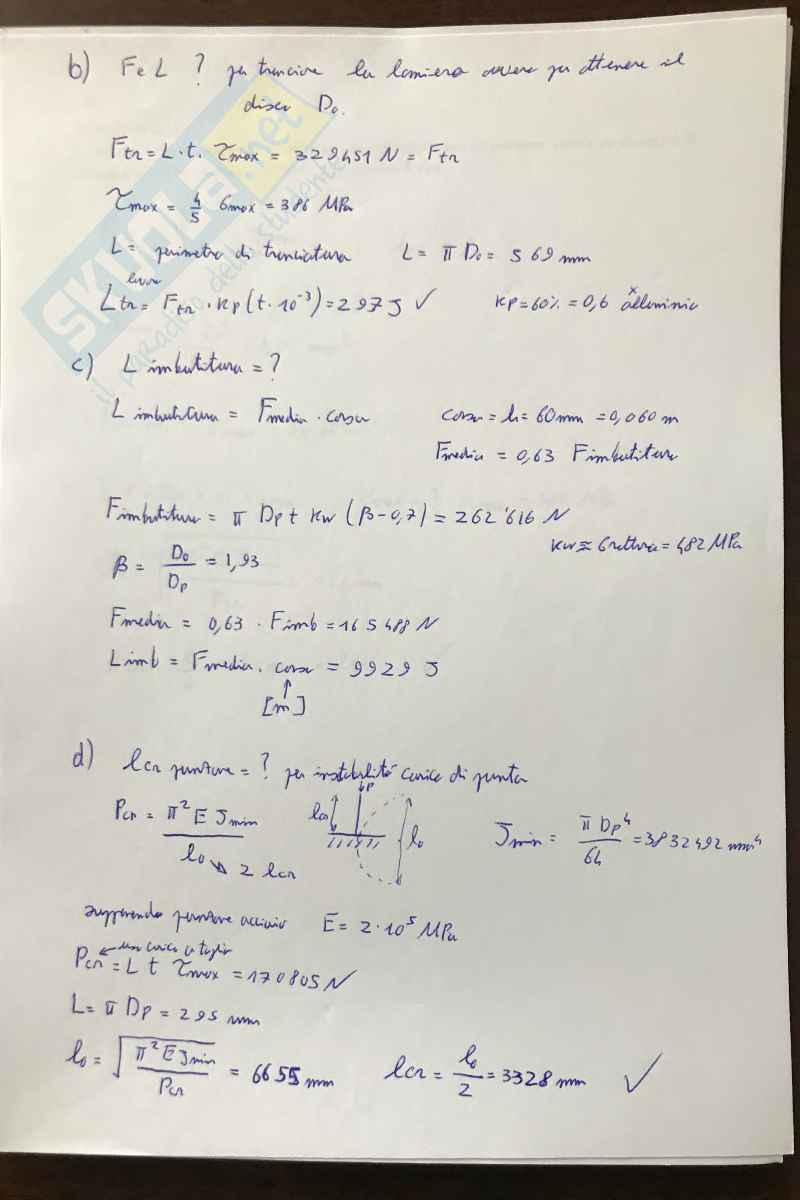 b) F e L ? per tranciare la lamiera ovvero per ottenere il
disco D₀.
Ftr = L · t · τmax = 329451 N = Ftr
τmax = 4/5 σmax = 386 MPa
L = perimetro di tranciatura L = π D₀ = 569 mm
lavoro
Ltr = Ftr · kp (t · 10⁻³) = 297 J ✓ kp = 60% = 0,6 x alluminio
c) L imbutitura = ?
L imbutitura = Fmedia · corsa corsa = h = 60 mm = 0,060 m
Fmedia = 0,63 Fimbutitura
Fimbutitura = π Dp t kw (β - 0,7) = 262'616 N
kw ≅ σrottura = 482 MPa
β = D₀/Dp = 1,93
Fmedia = 0,63 · Fimb = 165488 N
Limb = Fmedia · corsa = 9929 J
↑
[m]
d) lcr punzone = ? per instabilità carico di punta
Pcr = π² E Jmin / l₀ ↘ 2 lcr P lcr l₀ Jmin = π Dp⁴/64 = 3832492 mm⁴
supponendo punzone acciaio E = 2·10⁵ MPa
Pcr = L t τmax = 170805 N
L = π Dp = 295 mm
l₀ = √(π² E Jmin / Pcr) = 6655 mm lcr = l₀/2 = 3328 mm ✓
SKUOLA.net
il paradiso dello studente